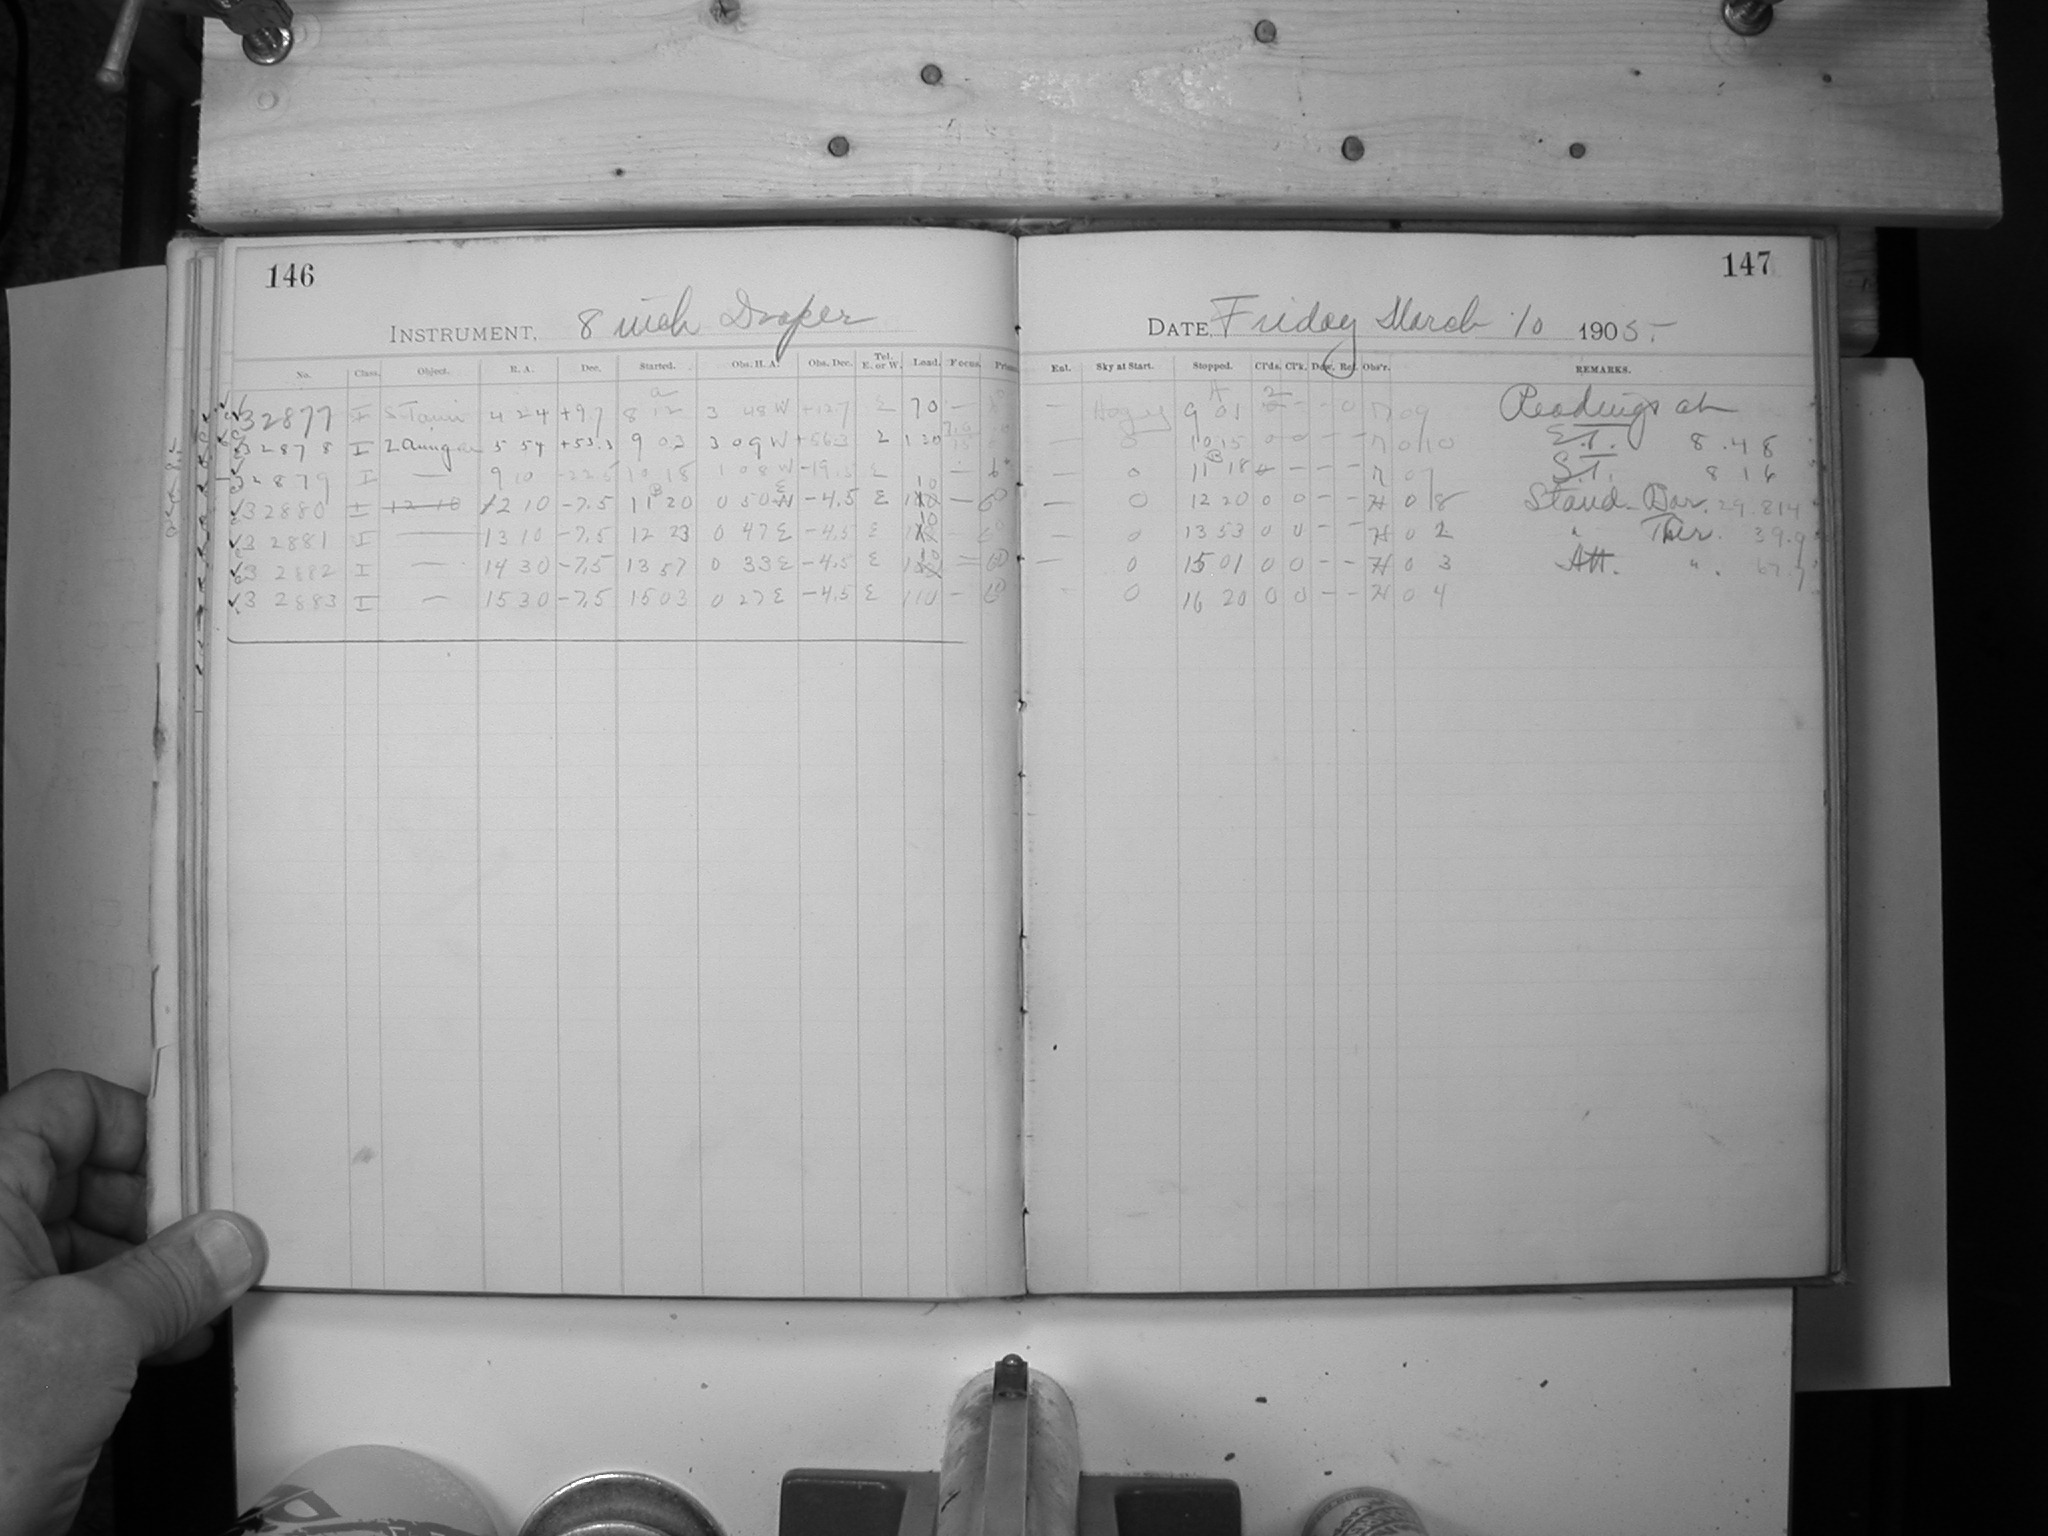 146
INSTRUMENT, 8 inch Draper
No. Class. Object. R. A. Dec. Started. Obs. H. A. Obs. Dec. Tel. E. or W. Load. Focus.
32877 I S Tauri 4 24 +9.7 8 12 3 48 W +12.7 E 70 —
32878 I 5 54 +53.3 9 03 3 09 W +56.3 120
32879 I — 9 10 -22.5 10 18 1 08 W -19.5 E 10 —
32880 I 12 10 12 10 -7.5 11 20 0 50 E -4.5 E 10 —
32881 I — 13 10 -7.5 12 23 0 47 E -4.5 E 10
32882 I — 14 30 -7.5 13 57 0 33 E -4.5 E 10 —
32883 I — 15 30 -7.5 15 03 0 27 E -4.5 E 110 —
147
DATE, Friday March 10 1905.
Ent. Sky at Start. Stopped. Cl'ds. Cl'k. Dew. Ref. Obs'r. REMARKS.
— Hazy 9 01 2 — — 0 09 Readings at
— 0 10 15 0 0 — — 0 10 E.T. 8.48
— 0 11 18 — — — 07 S.T. 8 16
— 0 12 20 0 0 — — H 0 8 Stand. Bar. 29.814
— 0 13 53 0 0 — — H 0 2 " Ther. 39.9
— 0 15 01 0 0 — — H 0 3 Att. "
0 16 20 0 0 — — H 0 4